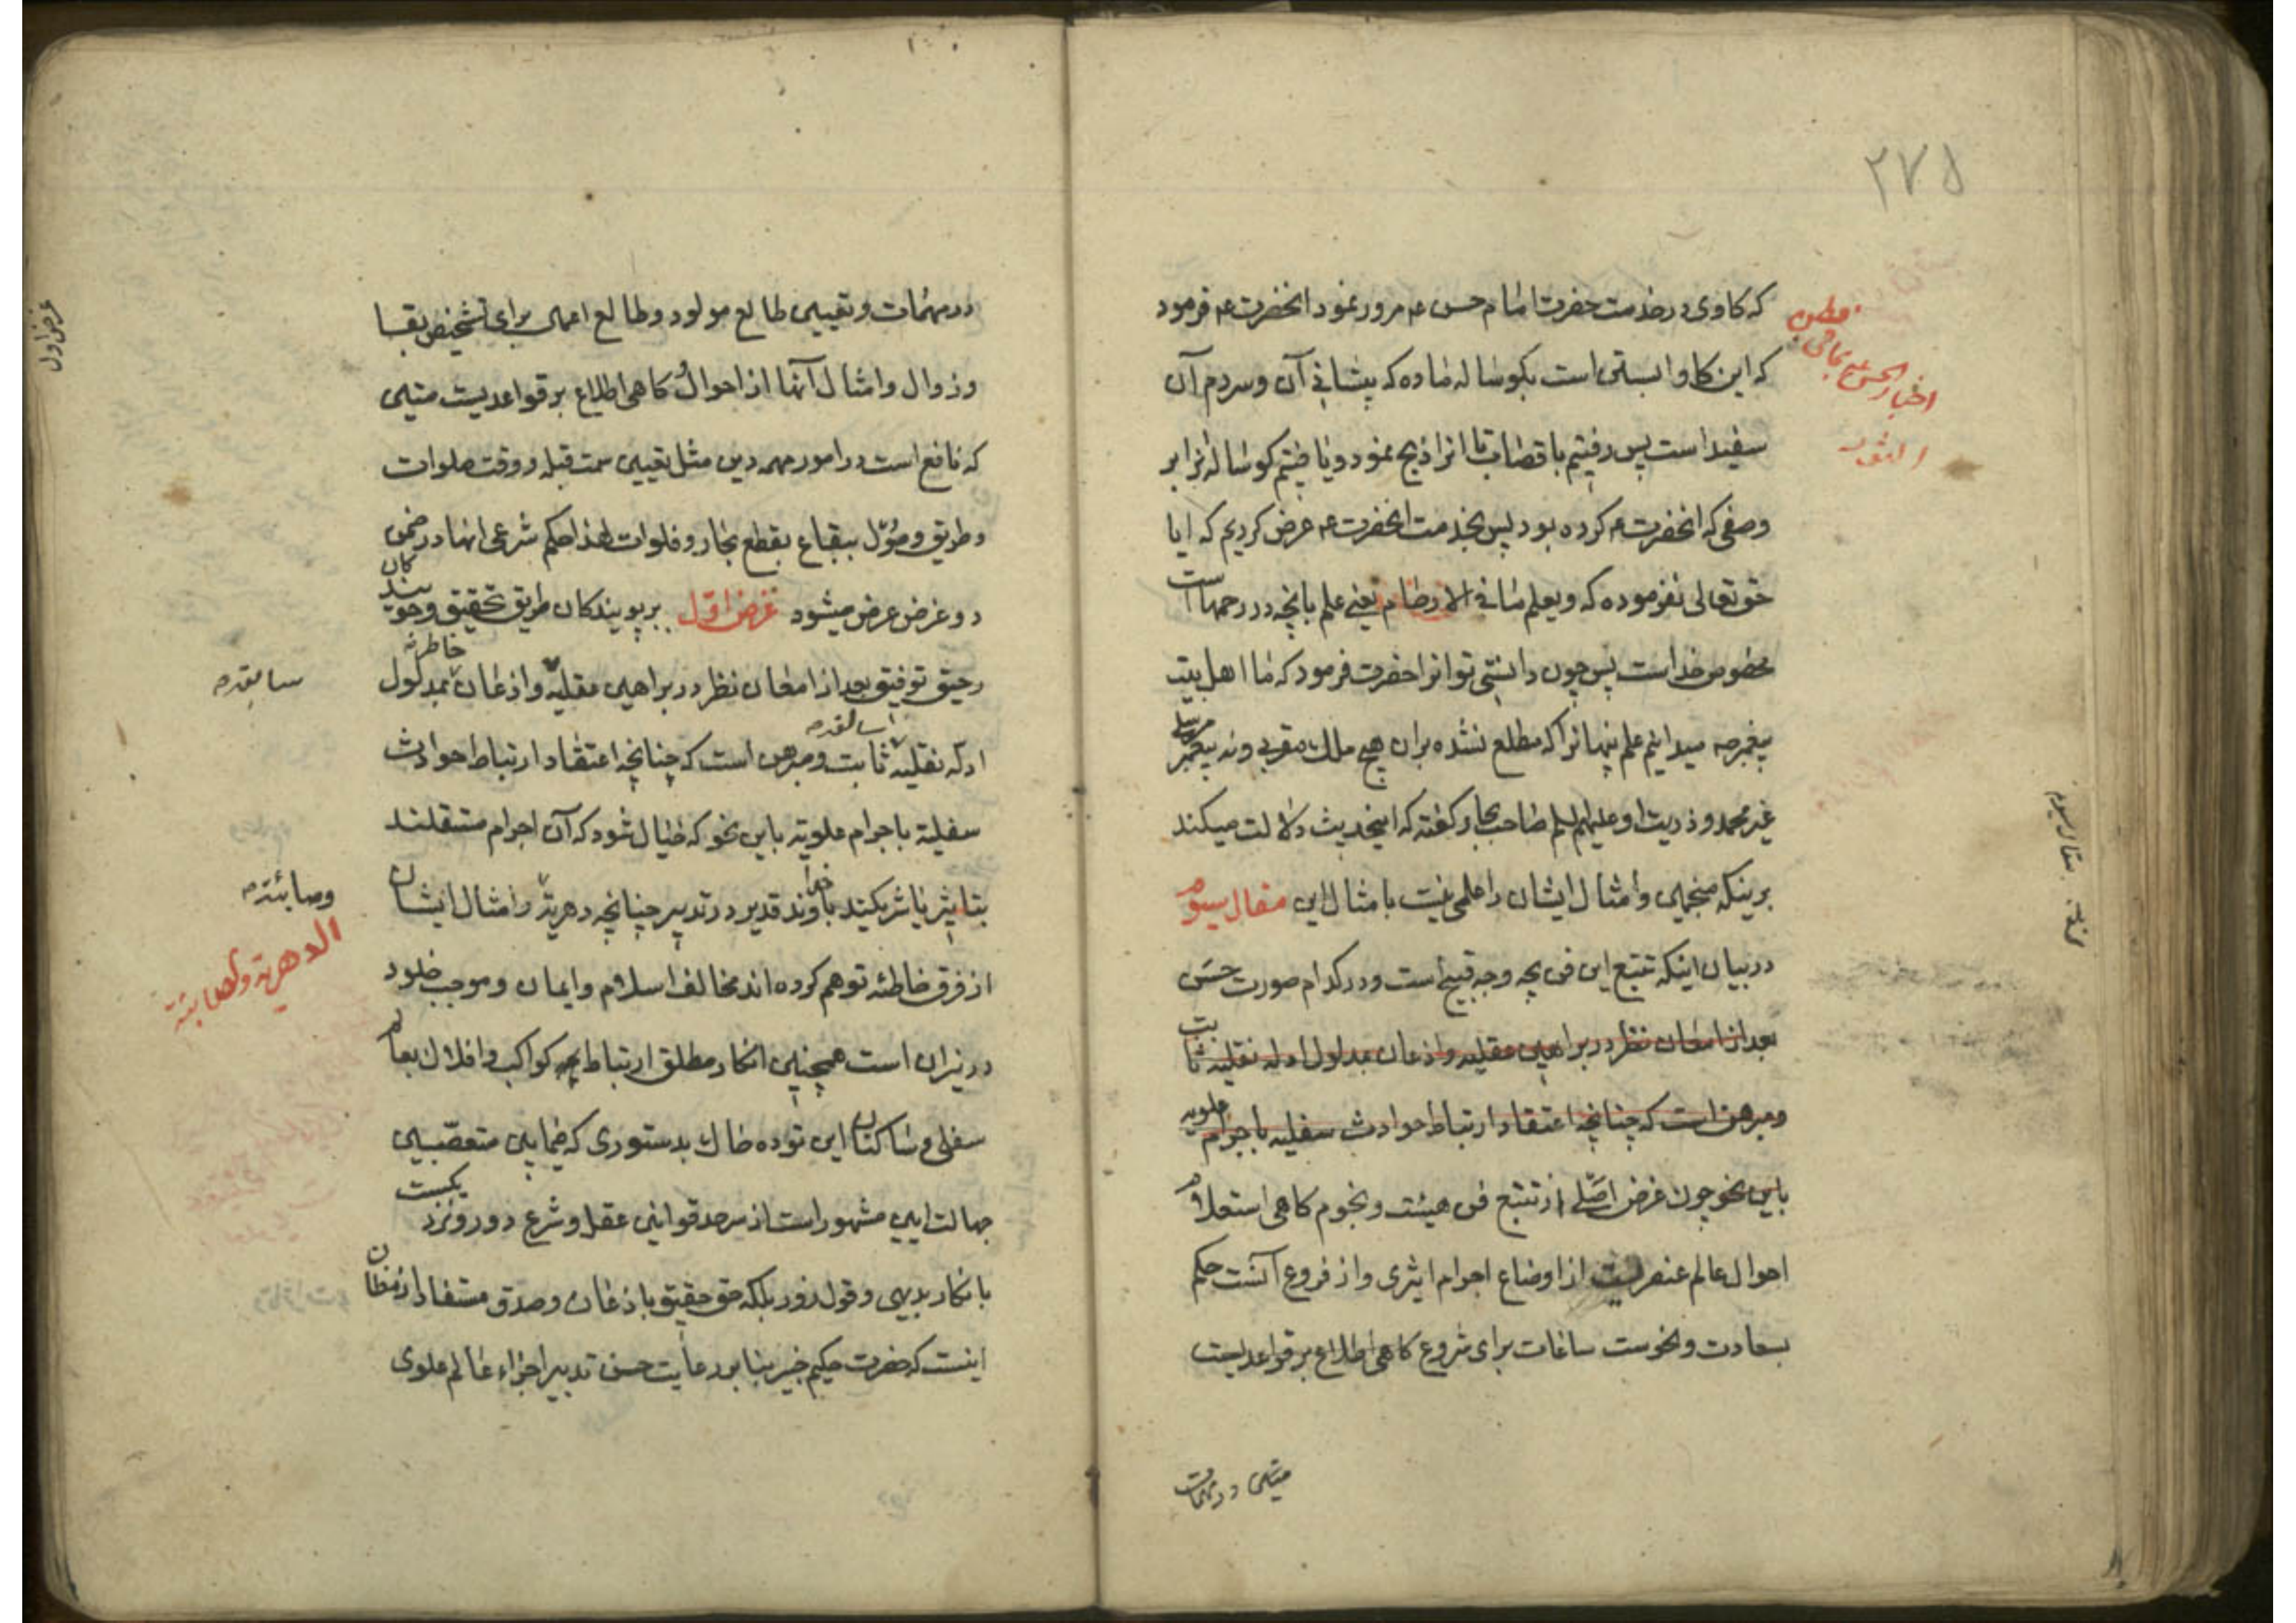 ۲۷۵
که کاوی در خدمت حضرت امام حسن ع مرور نمود انحضرت ع فرمود
که این کاو ابستنی است بکوساله ماده که پیشانی آن و سر دم آن
سفید است پس رفتیم با قصاب تا انرا ذبح نمود و یافتیم کوساله را بر
وصفی که انحضرت ع کرده بود پس بخدمت انحضرت ع عرض کردیم که ایا
حق تعالی نفرموده که ویعلم ما فی الارحام یعنی علم بانچه در رحمها است
مخصوص خداست پس چون دانستی تو انرا حضرت فرمود که ما اهل بیت
پیغمبر ص میدانیم علم پنهانرا که مطلع نشده بران هیچ ملک مقرب و نه پیغمبر مرسلی
غیر محمد و ذریت او علیهم السلم صاحب بحار کفته که اینحدیث دلالت میکند
برینکه منجمین و امثال ایشان را علمی نیست بامثال این مقال سیوم
در بیان اینکه تتبع این فن بچه وجه قبیح است و در کدام صورت حسن
بعد از امعان نظر در براهین عقلیه و اذعان بمدلول ادله نقلیه ثابت
و مبرهن است که چنانچه اعتقاد ارتباط حوادث سفلیه باجرام علویه
باین نحو چون غرض اصلی از تتبع فن هیئت و نجوم کاهی استعلام
احوال عالم عنصریست از اوضاع اجرام اثیری و از فروع آنست حکم
بسعادت و نحوست ساعات برای شروع کاهی اطلاع بر قواعدیست
متین در مهمات
اخبار الحسن ع بما فی بطن
البقره
مقال سیوم
در مهمات و تعیین طالع مولود و طالع اعمال برای تشخیص بقا
و زوال و امثال آنها از احوال و کاهی اطلاع بر قواعدیست متین
که نافع است در امور مهمه دین مثل تعیین سمت قبله و وقت صلوات
و طریق وصول ببقاع بقطع بحار و فلوات لهذا حکم شرعی انها در ضمن
دو غرض عرض میشود غرض اول بر پویندکان طریق تحقیق و جویندکان
رحیق توفیق بعد از امعان نظر در براهین عقلیه و اذعان خاطر بمدلول
ادله نقلیه ثابت و مبرهن است که چنانچه اعتقاد ارتباط حوادث
سفلیة باجرام علویة باین نحو که خیال شود که آن اجرام مستقلند
بتاثیر یا شریکند با خداوند قدیر در تدبیر چنانچه دهریة و امثال ایشان
از فرق خاطئه توهم کرده اند مخالف اسلام و ایمان و موجب خلود
در نیران است همچنین انکار مطلق ارتباط بهر کواکب و افلاک بعالم
سفلی و ساکنان این توده خاک بدستوری که فیمابین متعصبین
جهالت ایین مشهور است از سرحد قوانین عقل و شرع دور و نزدیکست
بانکار بدیهی و قول زور بلکه حق حقیق باذعان و صدق مستفاد از مظان
اینست که حضرت حکیم خبیر بنا بر رعایت حسن تدبیر اجزاء عالم علوی
غرض اول
وصابئة
الدهریة و الصابئة